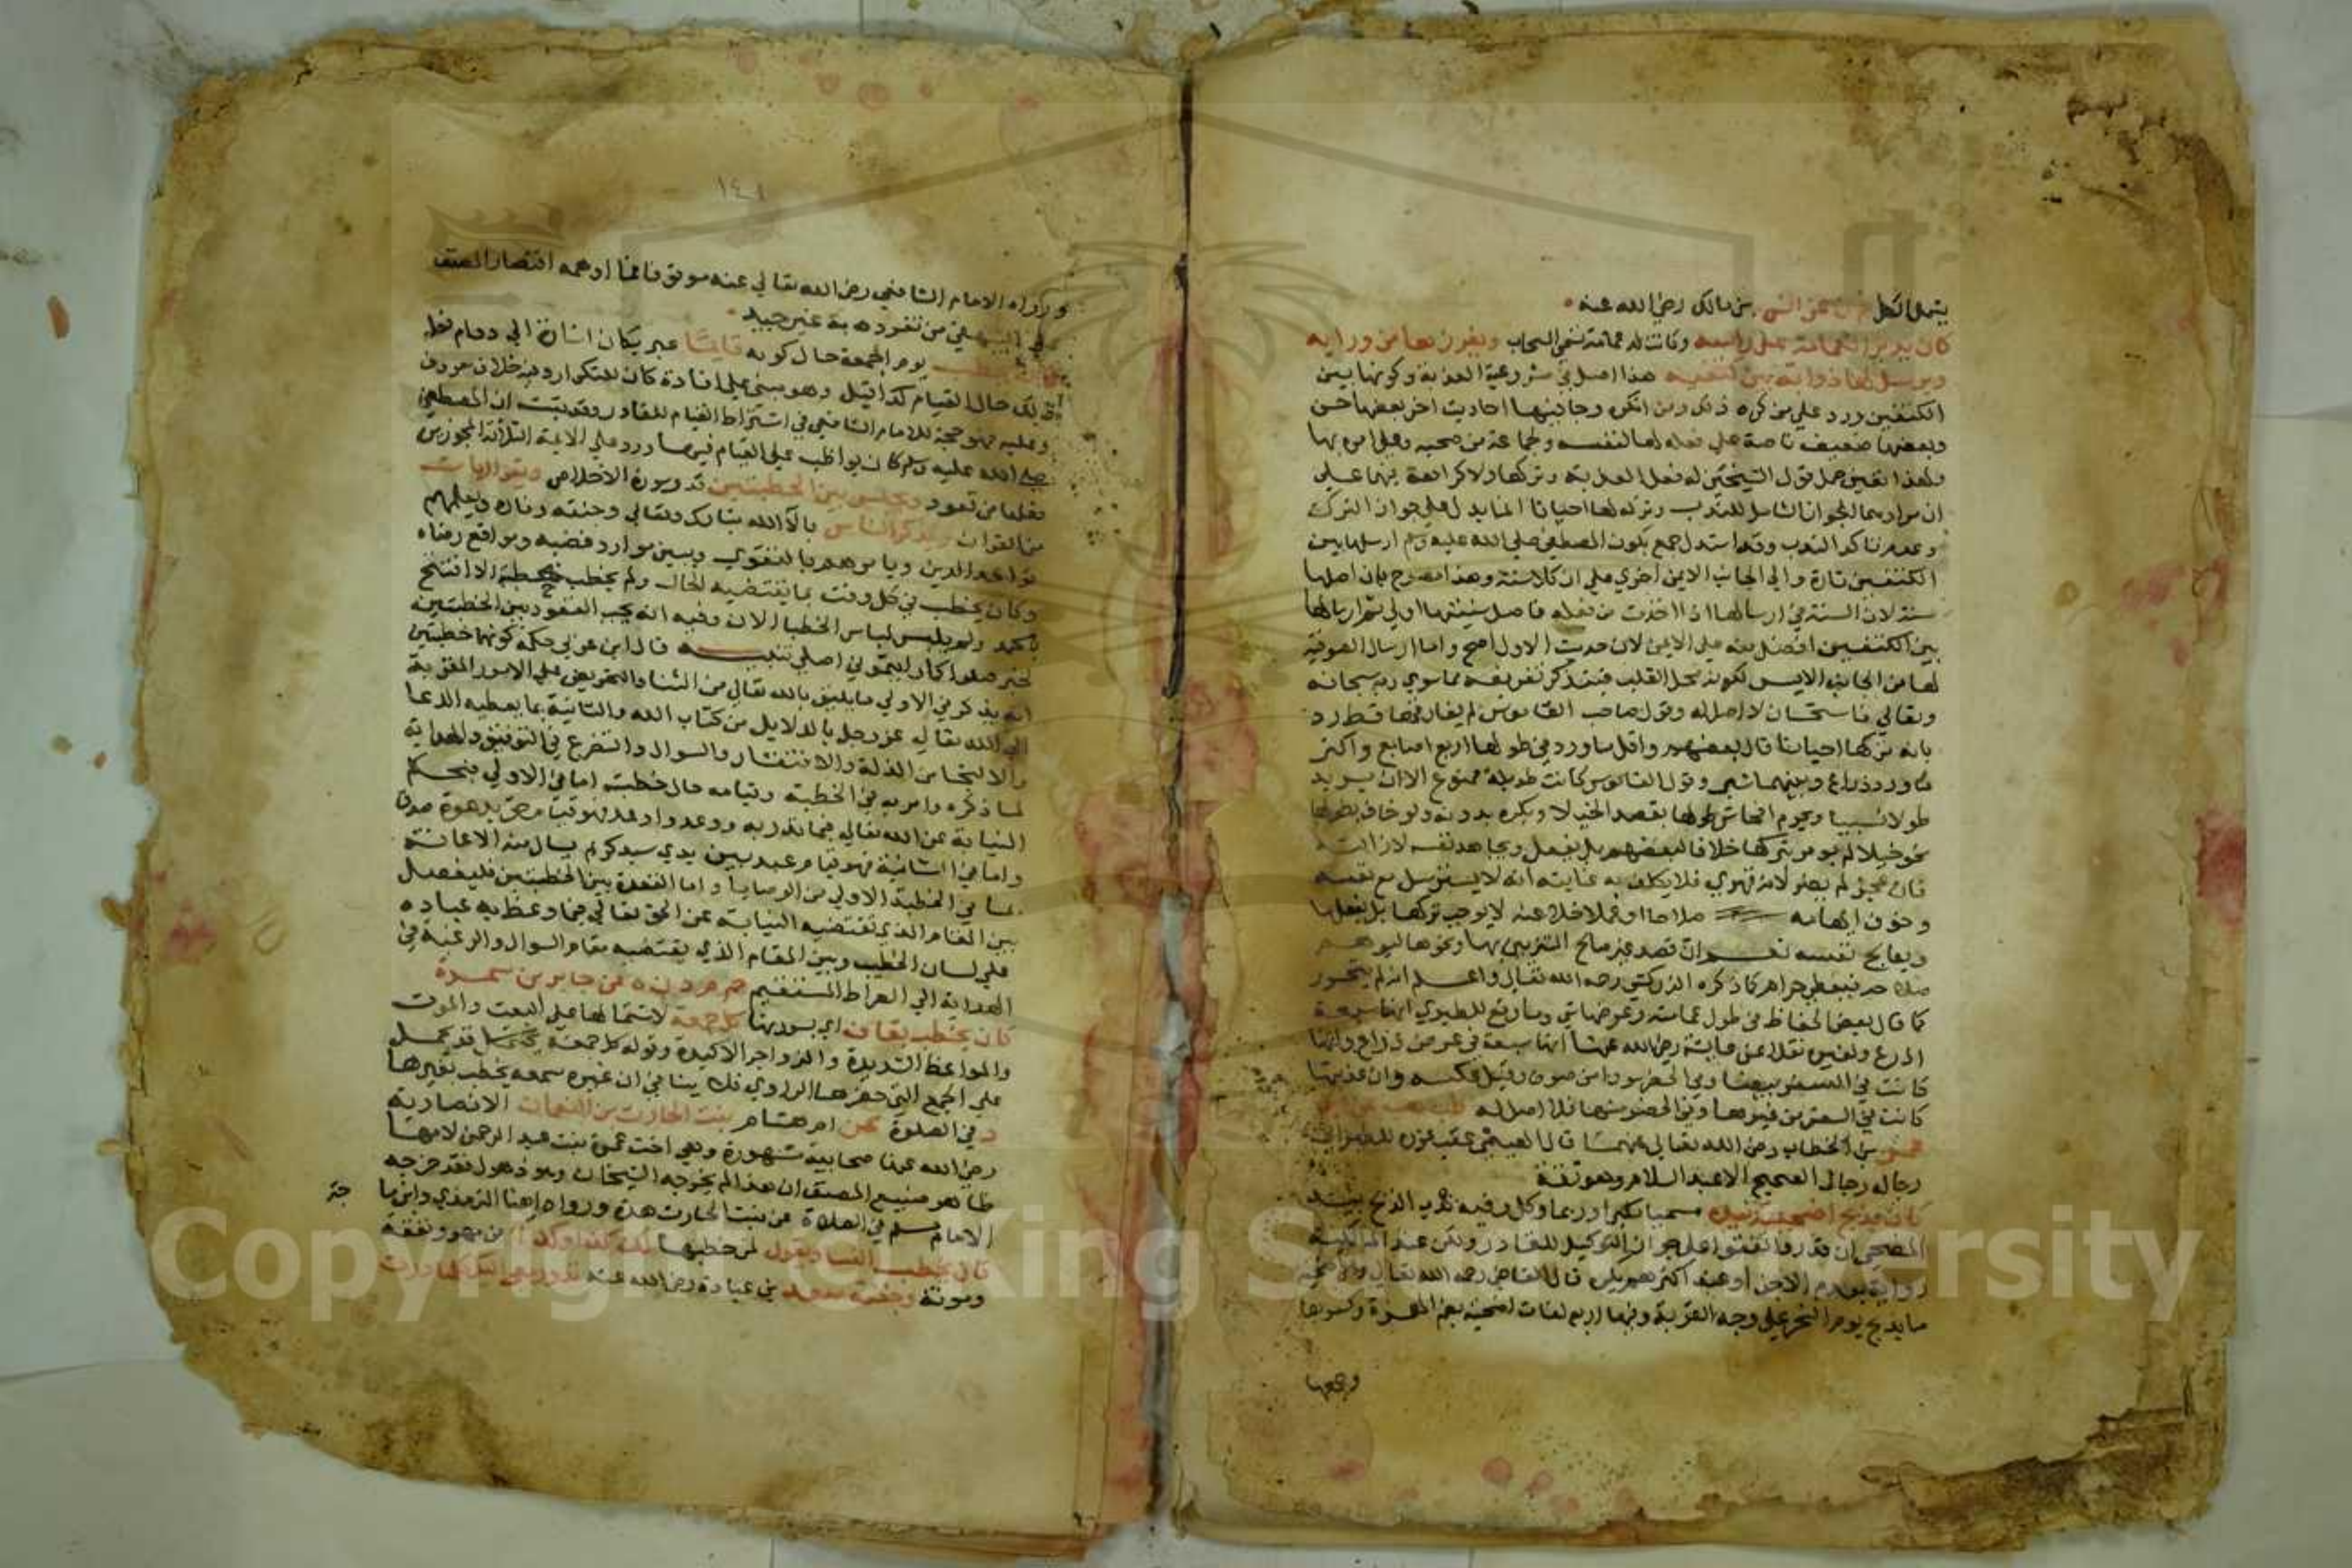 يشمل الكل عن انس بن مالك رضي الله عنه
كان يدير العمامة على راسه وكانت له عمامة تسمى السحاب ويغرزها من ورايه
ويرسل لها ذوابة بين كتفيه هذا اصل في مشروعية العذبة وكونها بين
الكتفين ورد علي من كره ذلك ومن انكره وجا فيها احاديث اخر بعضها حسن
وبعضها ضعيف ناصة علي فعله لها لنفسه ولجماعة من صحبه وعلى امره بها
ولهذا تعين حمل قول الشيخين له فعل العذبة وتركها ولا كراهة فيهما على
ان مرادهما الجواز الشامل للندب وتركه لها احيانا انما يدل على جواز الترك
وعدم تاكد الندب وقد استدل جمع بكون المصطفى صلى الله عليه وسلم ارسلها بين
الكتفين تارة والي الجانب الايمن اخري على ان كلا سنة وهذا مصرح بان اصلها
سنة لان السنة في ارسالها اذا اخذت من فعله فاصل سنيتها اولى ثم ارسالها
بين الكتفين افضل منه على الايمن لان حديث الاول اصح واما ارسال الصوفية
لها من الجانب الايسر لكونه محل القلب فيتذكر تفريغه مما سوي ربه سبحانه
وتعالي فاستحسان لا اصل له وقول صاحب القاموس لم يفارقها قط رد
بانه تركها احيانا قال بعضهم واقل ما ورد في طولها اربع اصابع واكثر
ما ورد ذراع وبينهما شبر وقول القاموس كانت طويلة ممنوع الا ان يريد
طولا نسبيا ويحرم افحاش طولها بقصد الخيلا ويكره بدونه ولو خاف بفعلها
نحو خيلا لم يومر بتركها خلافا لبعضهم بل يفعل ويجاهد نفسه لازالته
فان عجز لم يضر لانه قهري فلا يكلف به غايته انه لا يسترسل مع نفسه
وخوف ايهامه صلاحا او علما خلا عنه لا يوجب تركها بل يفعلها
ويعالج نفسه نعم ان قصد غير صالح التزيين بها ونحوها ليوهم
صلاحه فيعطي حرام كما ذكره الزركشي رحمه الله تعالى واعلم انه لم يتحرر
كما قال بعض الحفاظ في طول عمامته وعرضها شي وما وقع للطبري انها سبعة
اذرع ولغيره نقلا عن عايشة رضي الله عنها انها سبعة في عرض ذراع وانها
كانت في السفر بيضا وفي الحضر سودا من صوف وقيل عكسه وان عذبتها
كانت في السفر من غيرها وفي الحضر منها فلا اصل له طب هب عن ابن
عمر بن الخطاب رضي الله تعالى عنهما قال الهيثمي عقب عزوه للطبراني
رجاله رجال الصحيح الا عبد السلام وهو ثقة
كان يذبح اضحيته بيده مسميا مكبرا وربما وكل وفيه ندب الذبح بيد
المضحي ان قدر واتفقوا على جواز التوكيل للقادر ولكن عند المالكية
رواية بعدم الاجزا وعند اكثرهم يكره قال القاضي رحمه الله تعالى والاضحية
ما يذبح يوم النحر علي وجه القربة وفيها اربع لغات اضحية بضم الهمزة وكسرها
وجمعها
١٤١
ورواه الامام الشافعي رضي الله تعالي عنه موثق فما اوهمه اقتصار المصنف
علي البيهقي من تفرده به غير جيد
كان يخطب يوم الجمعة حال كونه قايما عبر بكان اشارة الي دوام فعله
ذلك حال القيام كذا قيل وهو مبني علي افادة كان للتكرار وفيه خلاف معروف
وعليه فهو حجة للامام الشافعي في اشتراط القيام للقادر وقد ثبت ان المصطفى
صلى الله عليه وسلم كان يواظب على القيام فيها ورد على الايمة الثلاثة المجوزين
فعلها من قعود ويجلس بين الخطبتين قدر سورة الاخلاص ويقرا ايات
من القران ويذكر الناس بالآ الله تبارك وتعالي وجنته وناره ويعلمهم
قواعد الدين ويامرهم بالتقوي ويبين موارد غضبه ومواقع رضاه
وكان يخطب في كل وقت بما يقتضيه الحال ولم يخطب خطبة الا افتتح
بالحمد ولم يلبس لباس الخطبا الان وفيه انه يجب القعود بين الخطبتين
لخبر صلوا كما رايتموني اصلي تنبيه قال ابن عربي حكمة كونهما خطبتين
انه يذكر في الاولي ما يليق بالله تعالى من الثنا والتحريض على الامور المقربة
الي الله تعالى عز وجل بالدلايل من كتاب الله والثانية بما يعطيه الدعا
والالتجا من الذلة والافتقار والسوال والتضرع في التوفيق والهداية
لما ذكره وامر به في الخطبة وقيامه حال خطبته اما في الاولي فبحكم
النيابة عن الله تعالى فيما انذر به ووعد واوعد فهو قيام حق بدعوة صدق
واما في الثانية فهو قيام عبد بين يدي سيد كريم يسال منه الاعانة
بما في الخطبة الاولي من الوصايا واما القعدة بين الخطبتين فليفصل
بين المقام الذي تقتضيه النيابة عن الحق تعالى فيما وعظ به عباده
علي لسان الخطيب وبين المقام الذي يقتضيه مقام السوال والرغبة في
الهداية الي الصراط المستقيم حم م د ن ه عن جابر بن سمرة
كان يخطب بقاف اي بسورتها كل جمعة لاشتمالها على البعث والموت
والمواعظ الشديدة والزواجر الاكيدة وقوله كل جمعة قد يحمل
على الجمع التي حضرها الراوي فلا ينافي ان غيره سمعه يخطب بغيرها
د في الصلوة عن ام هشام بنت الحارث بن النعمان الانصارية
رضي الله عنها صحابية مشهورة وهي اخت عمرة بنت عبد الرحمن لامها
ظاهر صنيع المصنف ان هذا لم يخرجه الشيخان وهو ذهول فقد خرجه
الامام مسلم في الصلاة عن بنت الحارث هذه ورواه ايضا الترمذي وابن ما
جة
كان يخطب النسا ويقول لمن خطبها لك كذا وكذا من مهر ونفقة
ومونة وجفنة سعد بن عبادة رضي الله عنه تدور معي اليك كلما درت